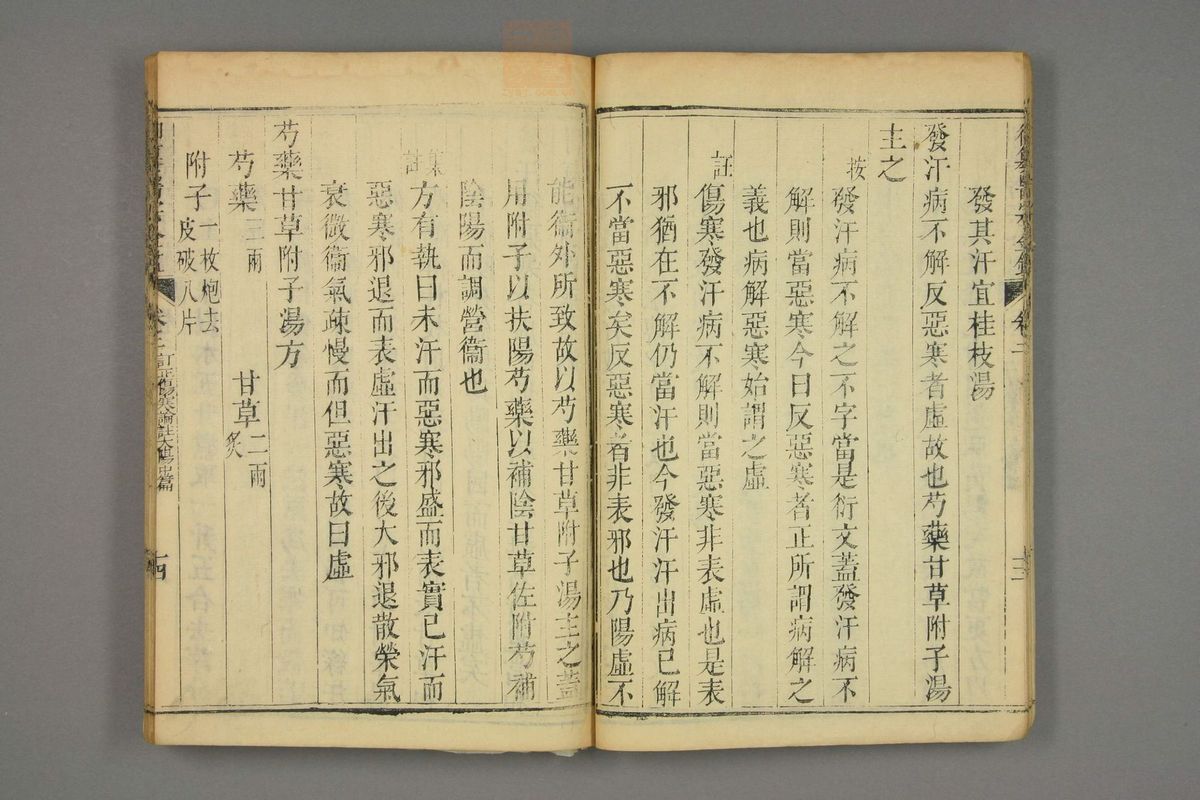 發其汗宜桂枝湯
發汗病不解反惡寒者虛故也芍藥甘草附子湯
主之
按
發汗病不解之不字當是衍文蓋發汗病不
解則當惡寒今日反惡寒者正所謂病解之
義也病解惡寒始謂之虛
註
傷寒發汗病不解則當惡寒非表虛也是表
邪猶在不解仍當汗也今發汗汗出病已解
不當惡寒矣反惡寒者非表邪也乃陽虛不
十三
能衞外所致故以芍藥甘草附子湯主之蓋
用附子以扶陽芍藥以補陰甘草佐附芍補
陰陽而調營衞也
集註
方有執曰未汗而惡寒邪盛而表實已汗而
惡寒邪退而表虛汗出之後大邪退散榮氣
衰微衞氣疎慢而但惡寒故曰虛
芍藥甘草附子湯方
芍藥三兩
甘草二兩炙
附子一枚炮去皮破八片
卷二
訂正傷寒論註太陽中篇
十四